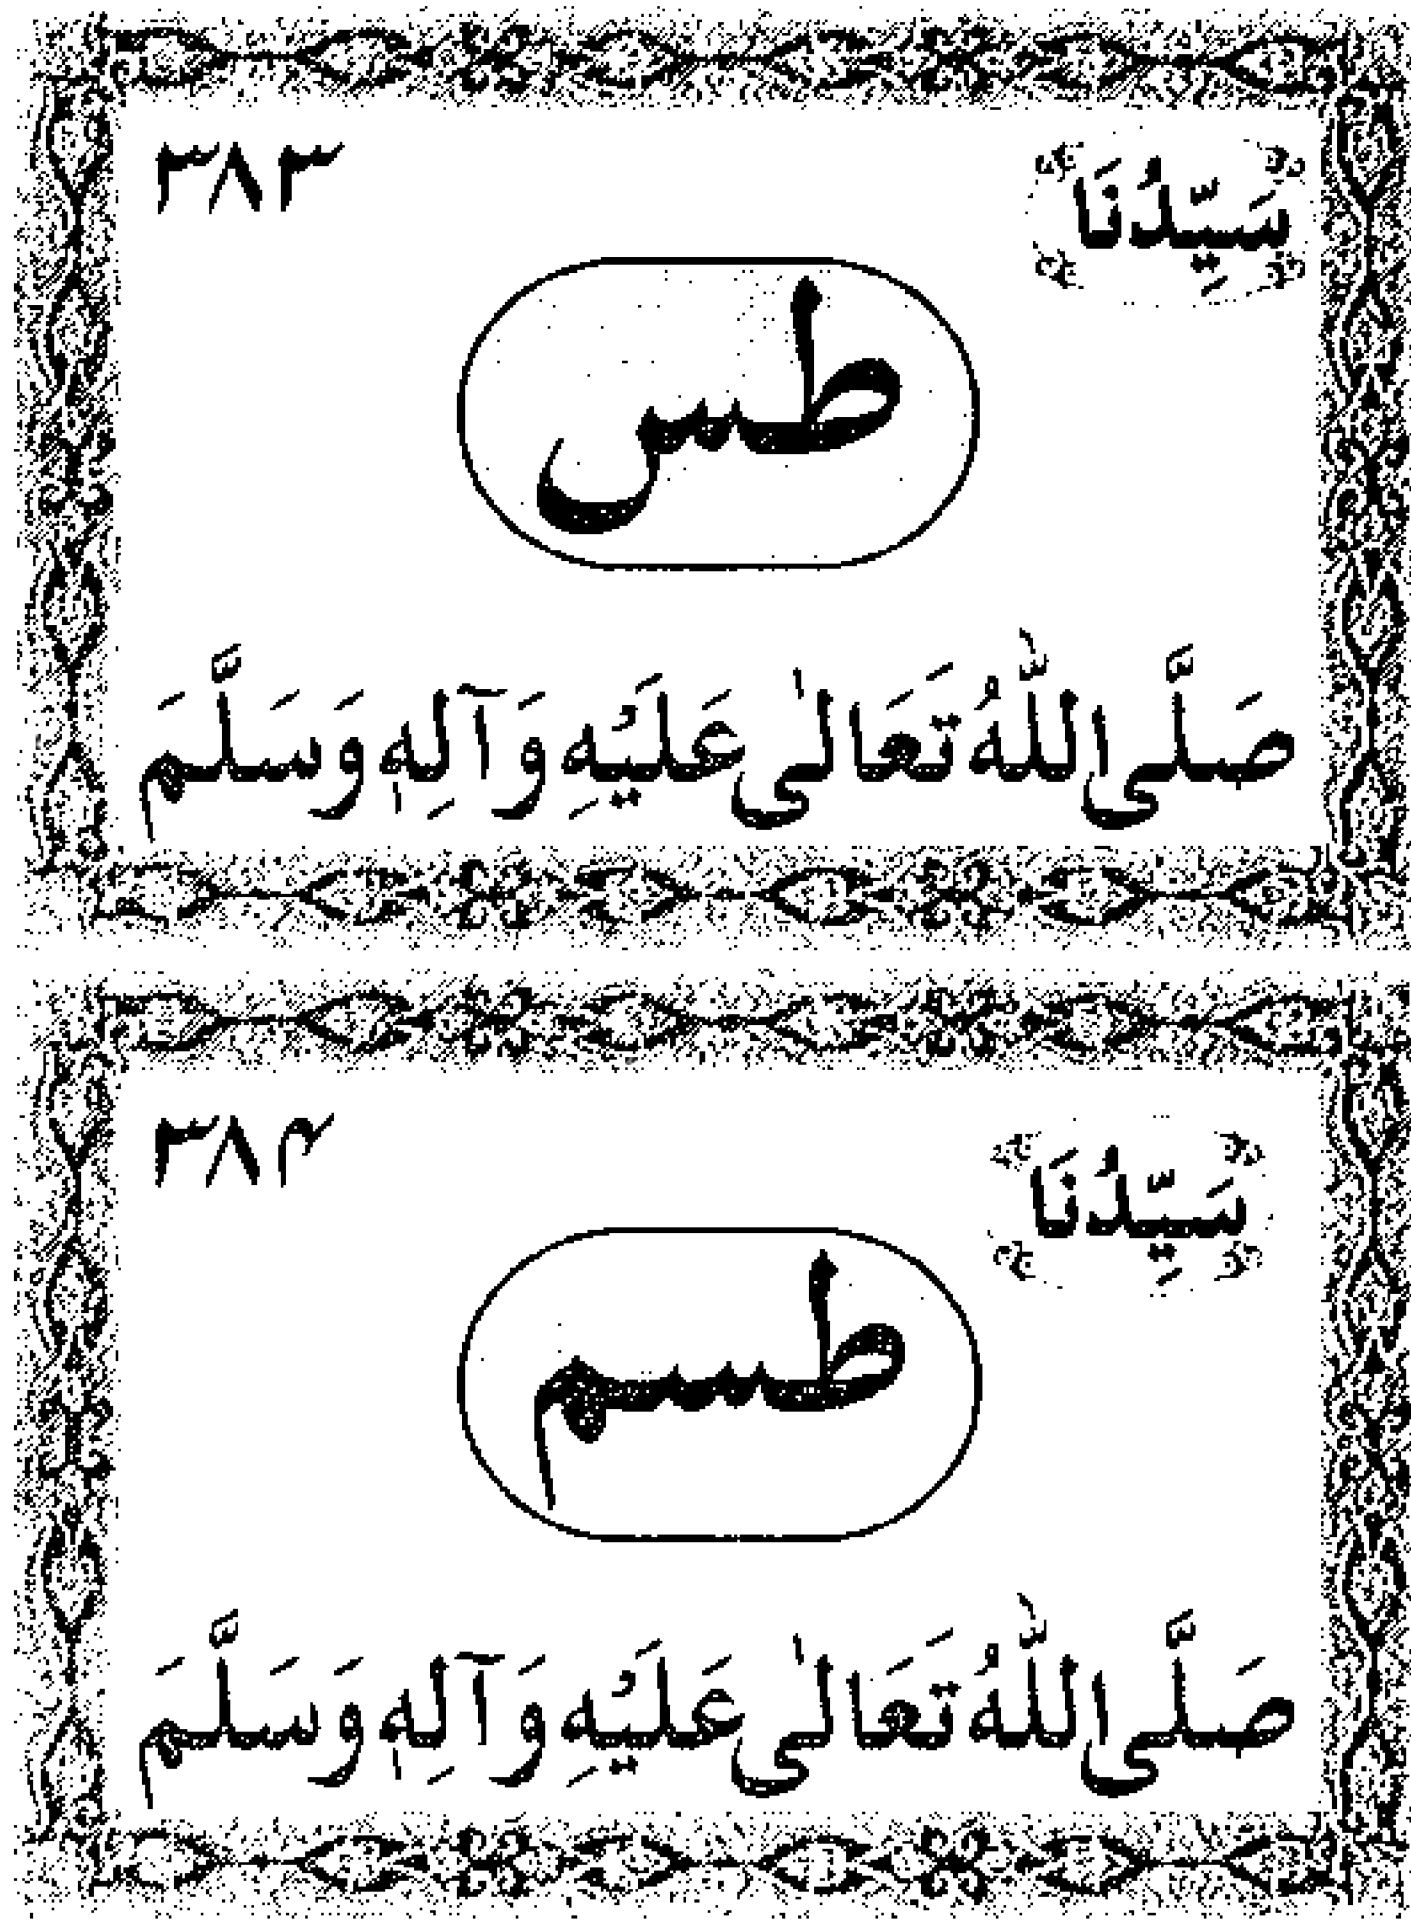 سَيِّدُنَا ٣٨٣
طس
صَلَّى اللّٰهُ تَعَالٰى عَلَيْهِ وَآلِهٖ وَسَلَّمَ
سَيِّدُنَا ٣٨۴
طسم
صَلَّى اللّٰهُ تَعَالٰى عَلَيْهِ وَآلِهٖ وَسَلَّمَ